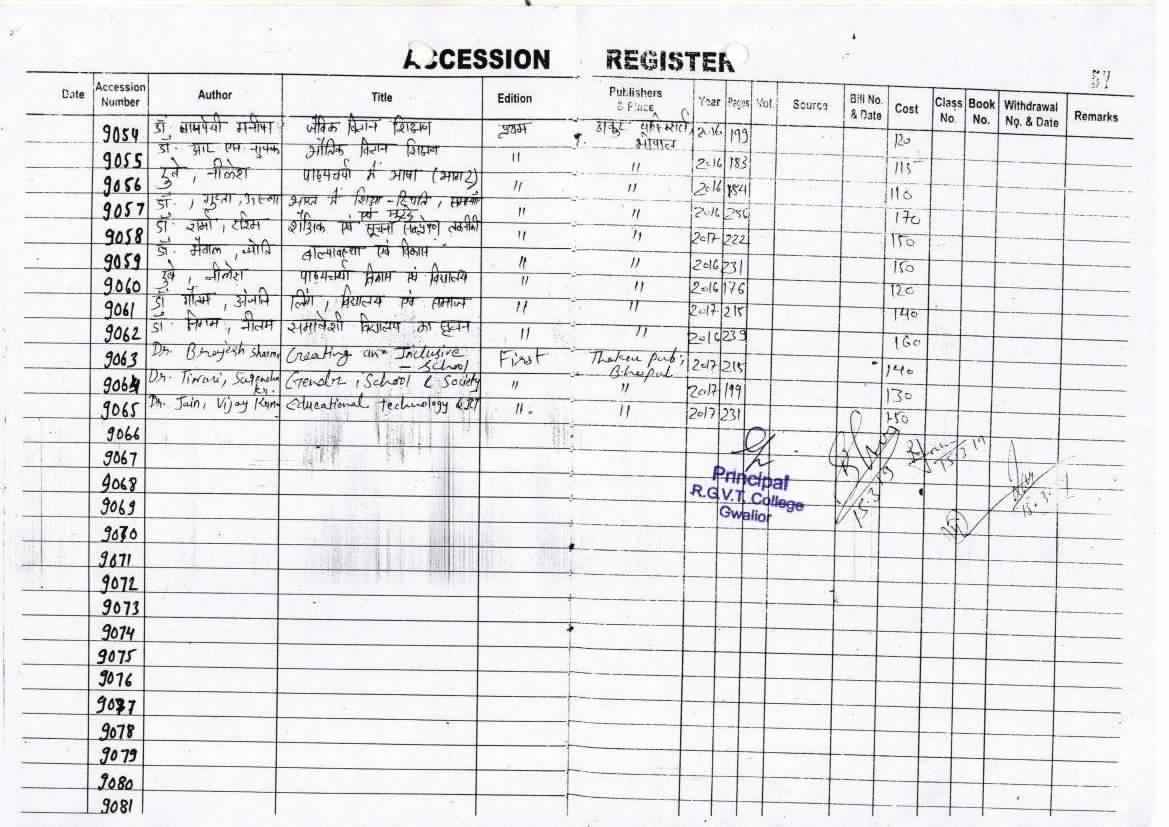 ACCESSION REGISTER
57
Date Accession Number Author Title Edition Publishers & Place Year Pages Vol. Source Bill No. & Date Cost Class No. Book No. Withdrawal No. & Date Remarks
9054 डॉ. बाजपेयी मनीषा जैविक विज्ञान शिक्षण प्रथम ठाकुर भोपाल 2016 199 120
9055 डॉ. आर एम भौतिक विज्ञान शिक्षण " " 2016 183 115
9056 दुबे, नीलेश पाठ्यचर्या में भाषा " " 2016 184 110
9057 डॉ., गुप्ता, भारत में शिक्षा - स्थिति, एवं मुद्दे " " 2016 256 170
9058 डॉ. शर्मा, शैक्षिक एवं सूचना संप्रेषण तकनीकी " " 2017 222 150
9059 डॉ. ज्योति बाल्यावस्था एवं विकास " " 2016 231 150
9060 दुबे, नीलेश पाठ्यचर्या विकास एवं विद्यालय " " 2016 176 120
9061 डॉ गौतम, अंजलि लिंग, विद्यालय एवं समाज " " 2017 215 140
9062 डॉ. निगम, नीलम समावेशी विद्यालय का सृजन " " 2016 239 160
9063 Dr. Brajesh Sharma Creating an Inclusive - School First Thakur pub; Bhopal 2017 215 140
9064 Dr. Tiwari, Gender, School & Society " " 2017 199 130
9065 Dr. Jain, Vijay Kumar Educational technology & ICT " " 2017 231 150
9066
9067
9068
9069
9070
9071
9072
9073
9074
9075
9076
9077
9078
9079
9080
9081
Principal
R.G.V.T. College
Gwalior
15.3.19
15.3.19
15.3.